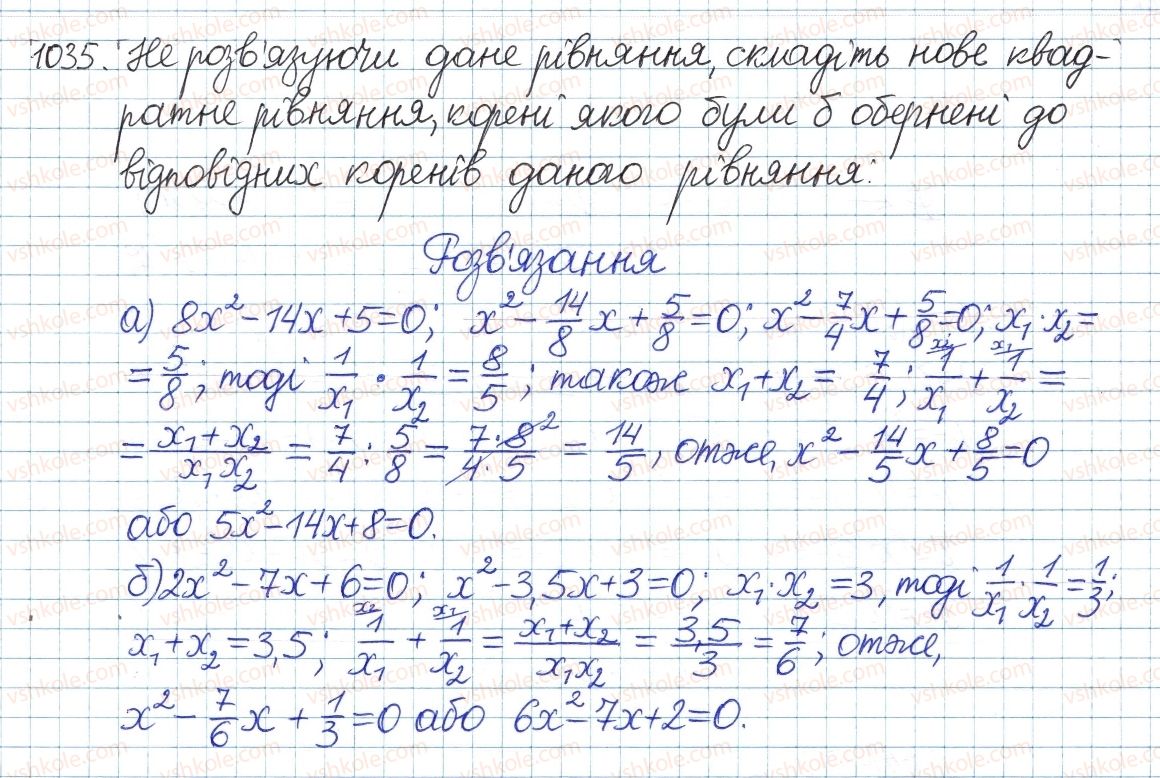 1035. Не розв'язуючи дане рівняння, складіть нове квад-
ратне рівняння, корені якого були б обернені до
відповідних коренів даного рівняння:
Розв'язання
а) 8x² - 14x + 5 = 0; x² - 14/8 x + 5/8 = 0; x² - 7/4 x + 5/8 = 0; x₁ · x₂ =
= 5/8; тоді 1/x₁ · 1/x₂ = 8/5; також x₁ + x₂ = 7/4; ˣ²⁄1/x₁ + ˣ¹⁄1/x₂ =
= (x₁ + x₂)/(x₁x₂) = 7/4 : 5/8 = (7 · 8²)/(4 · 5) = 14/5, отже, x² - 14/5 x + 8/5 = 0
або 5x² - 14x + 8 = 0.
б) 2x² - 7x + 6 = 0; x² - 3,5x + 3 = 0; x₁ · x₂ = 3, тоді 1/x₁ · 1/x₂ = 1/3;
x₁ + x₂ = 3,5; ˣ²⁄1/x₁ + ˣ¹⁄1/x₂ = (x₁ + x₂)/(x₁x₂) = 3,5/3 = 7/6; отже,
x² - 7/6 x + 1/3 = 0 або 6x² - 7x + 2 = 0.
vshkole.com